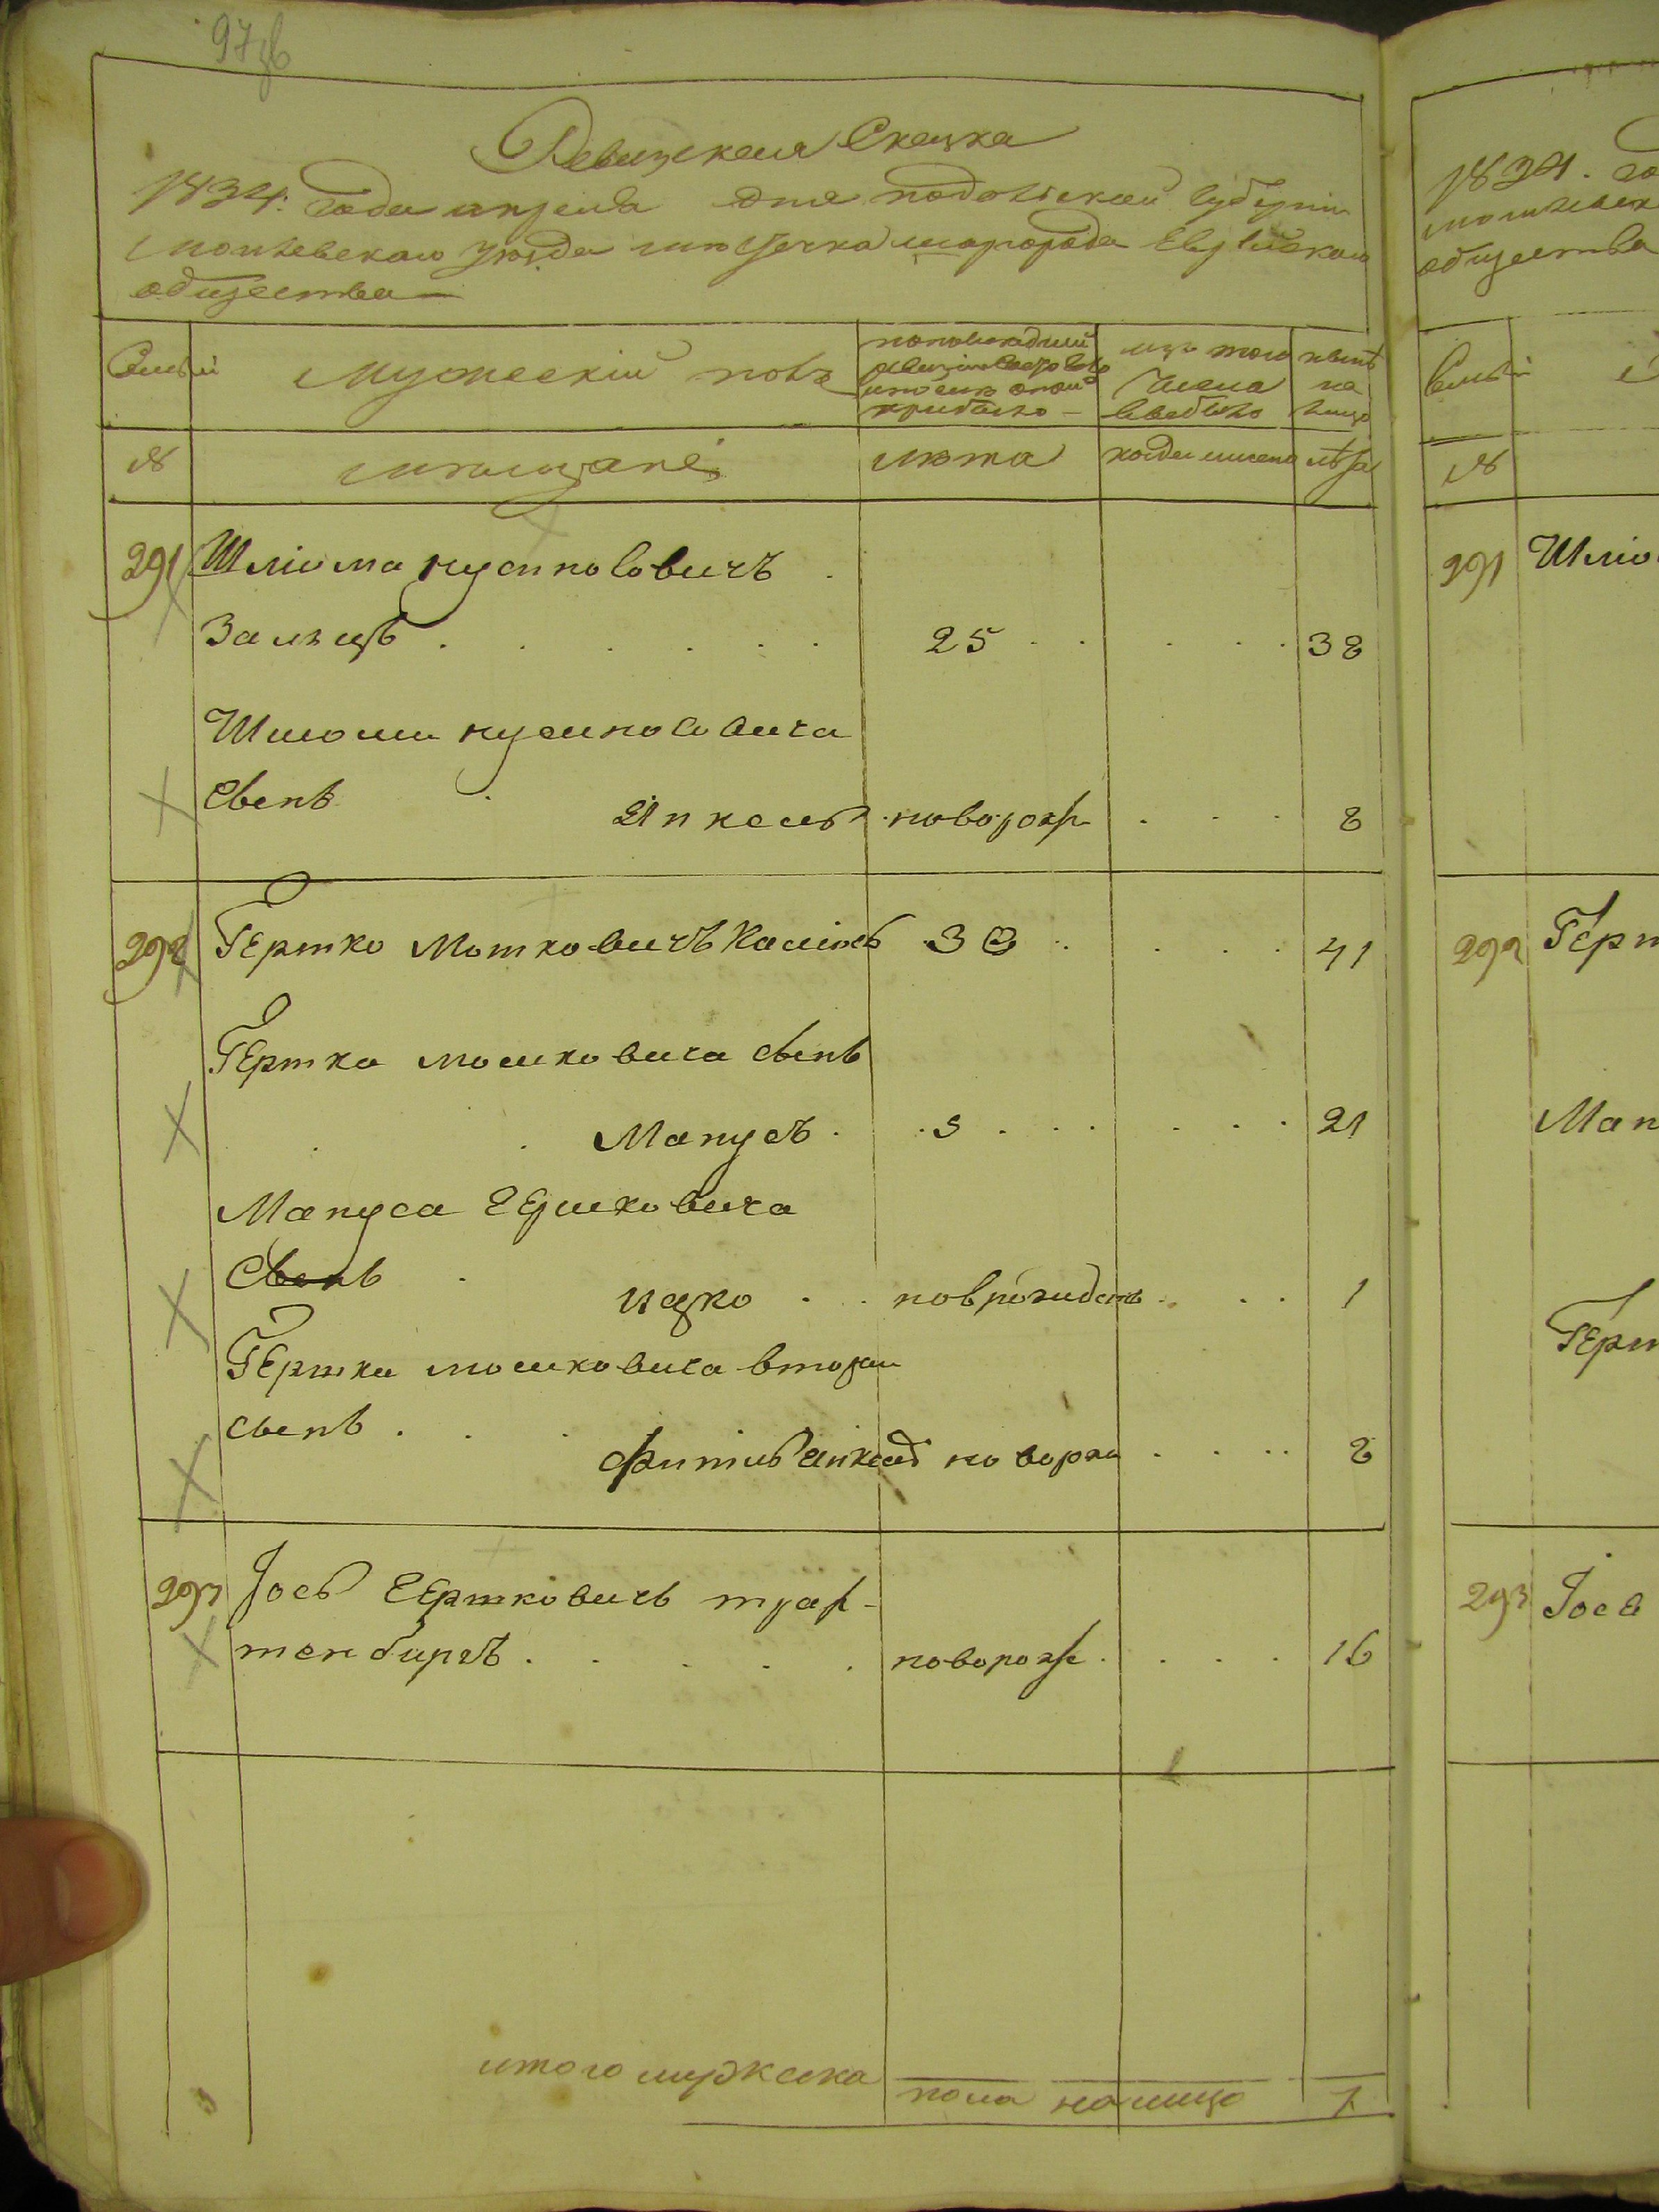 97зв
Ревизская Сказка
1834. года апреля дня подольской губернии
могилевскаго уезда местечка шаргорода Еврейскаго
общества
Семьи
Мужескій полъ
по последней
ревизіи состояло
и после оной
прибыло
изъ того
числа
выбыло
ныне
на
лицо
№
мещане
лета
когда именно
лета
291 Шліома нусимовичъ
Зальцъ 25 38
Шлиоми нусимовича
Сынъ Янкель новорож 8
292 Гершко Мошковичъ 41
Гершка мошковича сынъ
Манусъ 21
Мануса Гершковича
Сынъ ицко новорожденъ 1
Гершка мошковича второй
сынъ новорож 8
293 Іось Гершковичъ
тенбиргъ новорож 16
итого мужеска пола налицо 7
1834. го
могилевск
общества
Семьи
№
291 Шліо
292 Герш
Ман
Герш
293 Іося